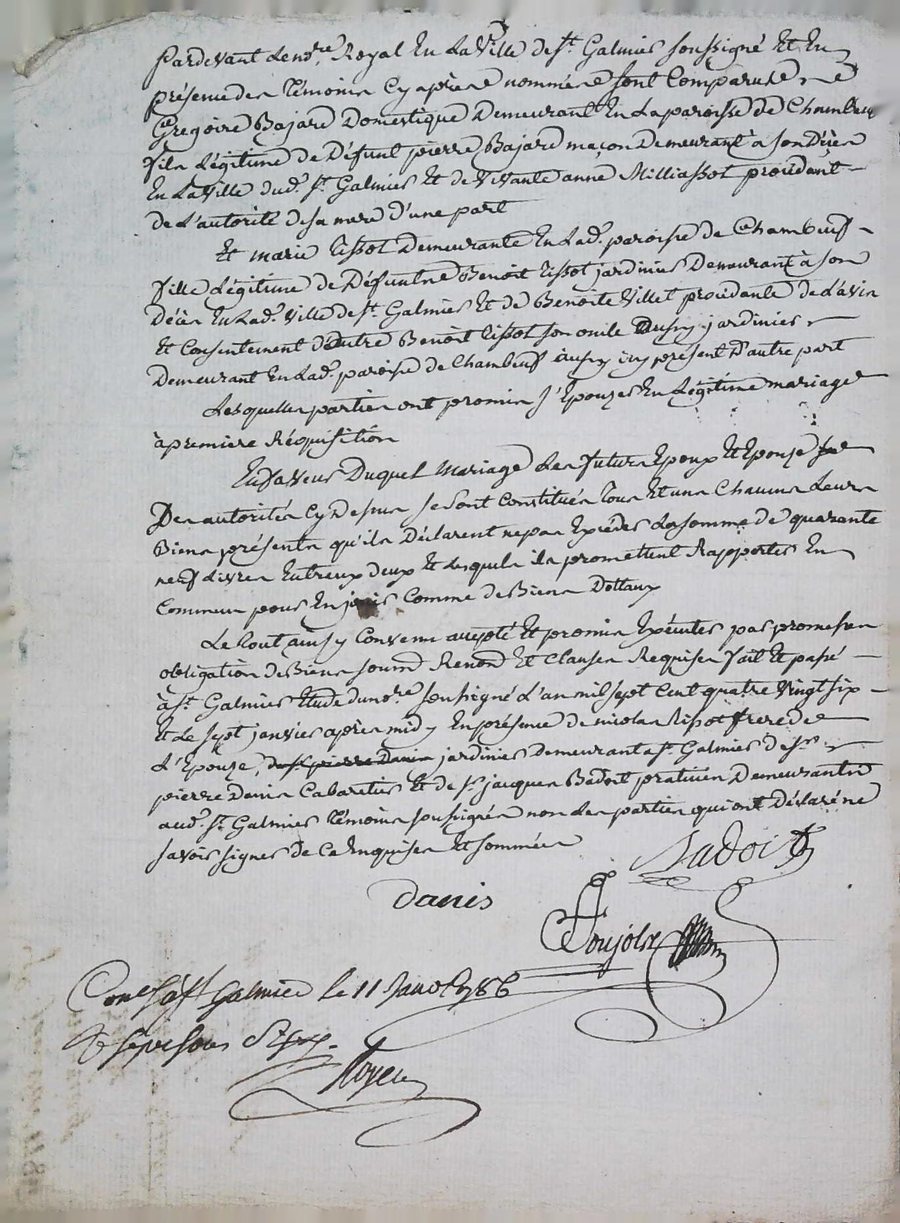 Pardevant Le no.re Royal En La Ville de St. Galmier soussigné Et En
présence des Témoins Cyaprès nommés sont Comparus
Gregoire Bajard Domestique Demeurant En La paroisse de Chambeuf
fils Légitime de Défunt pierre Bajard maçon Demeurant à son Décès
En La Ville dud. St. Galmier Et de Vivante anne Milliassot procédant
de L'autorité de sa mere d'une part
Et marie Tissot Demeurante En Lad. paroisse de Chambeuf
fille Légitime de Défunt Benoit Tissot jardinier Demeurant à son
Décès En Lad. Ville de St. Galmier Et de Benoite Villet procédante de L'avis
Et Consentement d'autre Benoit Tissot son oncle Aussy jardinier
Demeurant En Lad. paroisse de Chambeuf aussy icy présent D'autre part
Lesquelles parties ont promis s'Epouzer En Légitime mariage
à premiere Réquisition
En faveur Duquel Mariage Les futurs Epoux Et Epouze
Des autorités Cy Dessus se sont Constitués Tous Et uns Chacuns Leurs
Biens présents qu'ils Déclarent ne pas Excéder La somme de quarante
neuf Livres Entreux deux Et Lesquels ils promettent Rapporter En
Commun pour En jouir Comme de Biens Dottaux
Le tout ainsy Convenu accepté Et promis Exécuter par promesses
obligation de Biens soumd Renond Et Clauses Requises fait Et passé
à St. Galmier Etude du no.re soussigné L'an mil sept Cent quatre Vingt six
Et Le sept janvier après midy En présence de nicolas Tissot frere de
L'Epouze, de Sr pierre Danis jardinier Demeurant a St. Galmier de Sr
pierre Danis Cabaretier Et de Sr. jacques Badoit praticien Demeurants
aud. St. Galmier Témoins soussignés non Les parties qui ont Déclaré ne
savoir signer de Ce Enquises Et sommées
Badoit
Danis
Poujolx
Con.lé à St Galmier Le 11 Janv. 1786